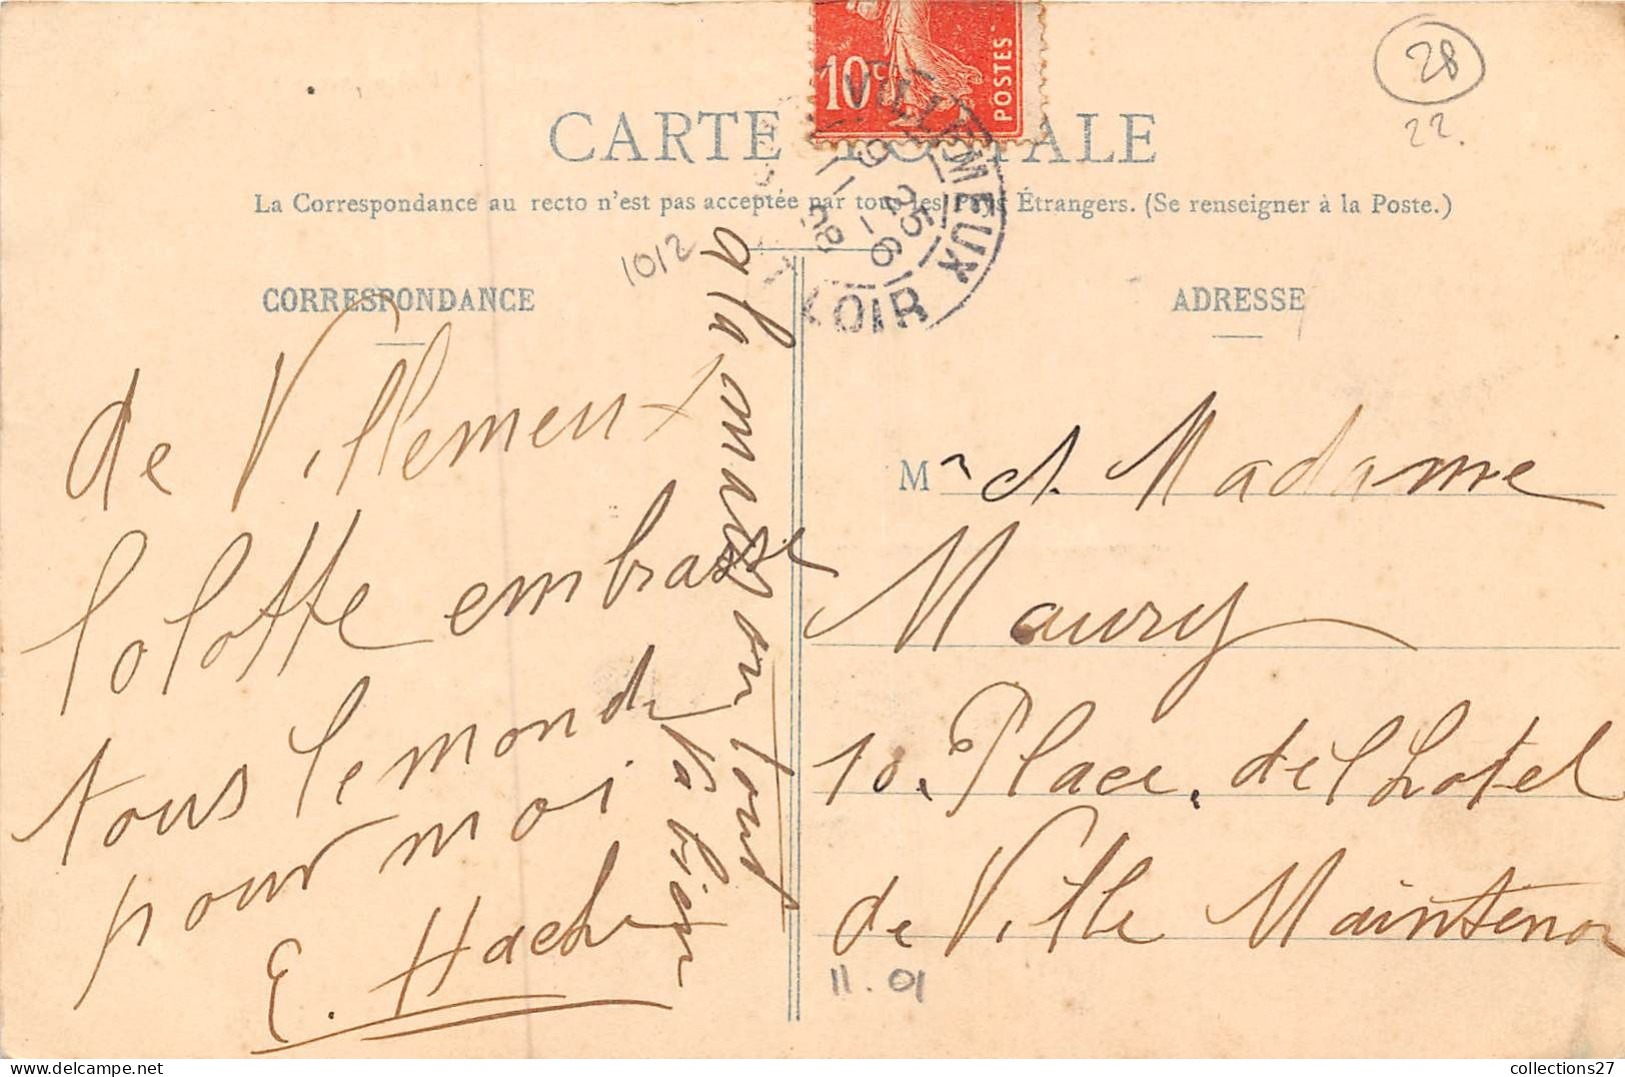 10c
POSTES
28
22.
CARTE POSTALE
VILLEMEUX
9
25-6
08
LOIR
La Correspondance au recto n'est pas acceptée par tous les Pays Étrangers. (Se renseigner à la Poste.)
1012
CORRESPONDANCE
ADRESSE
de Villemeux
lolotte embrasse
tous le monde
pour moi
E. Hache
a la maison tout
va bien
M r et Madame
Maury
10. Place de l'hotel
de Ville Maintenon
11.01
collections27